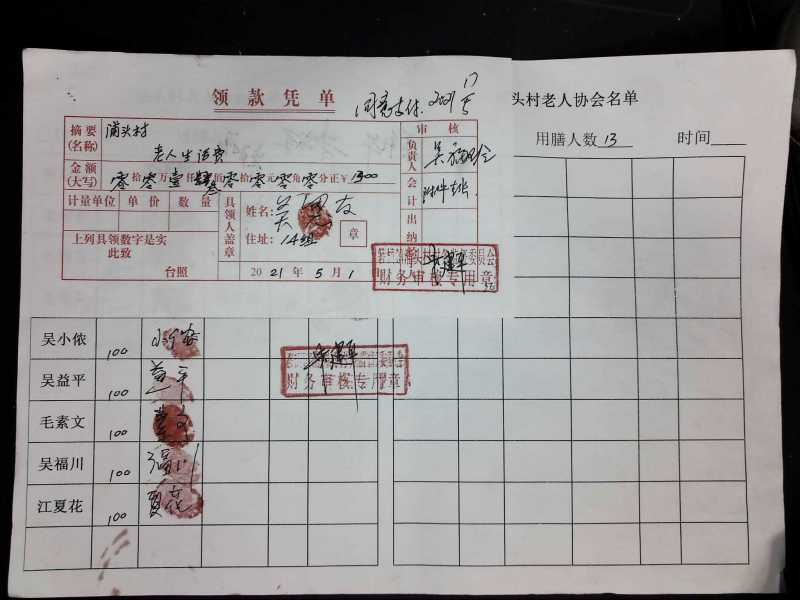 领款凭单
同意支付. 2021 5 17
摘要(名称) 浦头村
老人生活费
审核
负责人
金额(大写) 零拾零万壹仟叁佰零拾零元零角零分正￥1300
会计
计量单位 单价 数量
具领人盖章
姓名: 吴 友
住址: 14组
章
出纳
上列具领数字是实
此致
台照
2021年5月1
财务审核专用章
头村老人协会名单
用膳人数 13 时间
吴小侬 100 小侬
吴益平 100 益平
财务审核专用章
毛素文 100 素文
吴福川 100 福川
江夏花 100 夏花